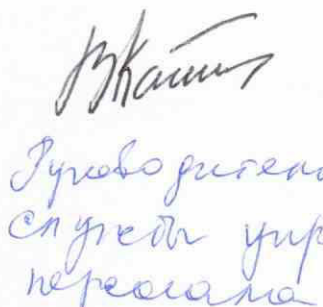 Руководитель
службы упр
персонала